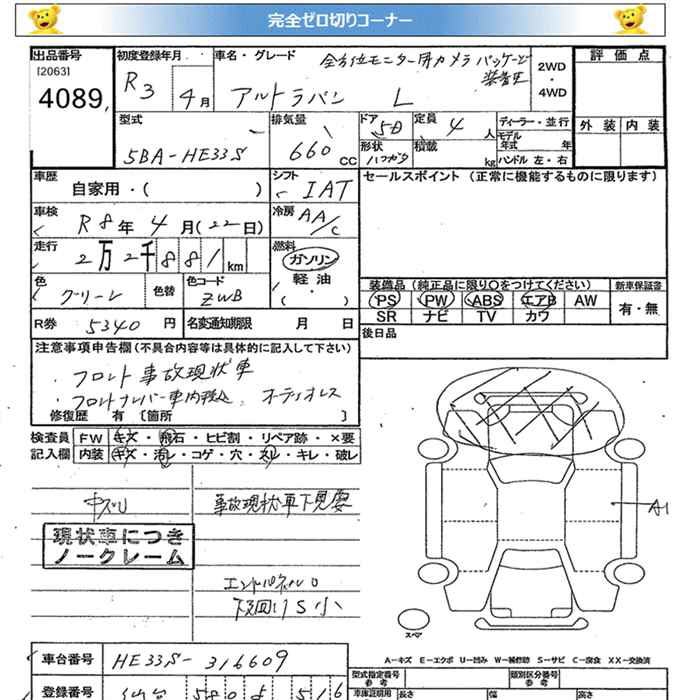 完全ゼロ切りコーナー
出品番号 [2063] 4089
初度登録年月 R3 4月
車名・グレード 全方位モニター用カメラパッケージ装着車
アルトラパン L
2WD・4WD
評価点
外装 内装
型式 5BA-HE33S
排気量 660 cc
ドア 5D
形状 ハッチバック
定員 4人
積載 kg
ディーラー・並行
モデル年式 年
ハンドル 左・右
車歴 自家用・( )
シフト IAT
車検 R8年4月(22日)
冷房 AA/C
走行 2万2千881km
燃料 ガソリン 軽油・( )
色 グリーン
色替
色コード ZWB
R券 5340円
名変通知期限 月 日
セールスポイント (正常に機能するものに限ります)
装備品 (純正品に限り○をつけてください)
新車保証書
PS PW ABS エアB AW
有・無
SR ナビ TV カワ
後日品
注意事項申告欄(不具合内容等は具体的に記入して下さい)
・フロント事故現状車
・フロントナンバー車内積込 オーディオレス
修復歴 有 〔箇所 〕
検査員 FW キズ・飛石・ヒビ割・リペア跡・×要
記入欄 内装 キズ・汚レ・コゲ・穴・スレ・キレ・破レ
事故現状車下見要
現状車につき
ノークレーム
エンドパネルU
下廻りS小
A1
スペア
A−キズ E−エクボ U−凹み W−補修跡 S−サビ C−腐食 XX−交換済
車台番号 HE33S-316609
型式指定番号 参考
類別区分番号 参考
登録番号 仙台 580
車庫証明用 長さ 幅 高さ